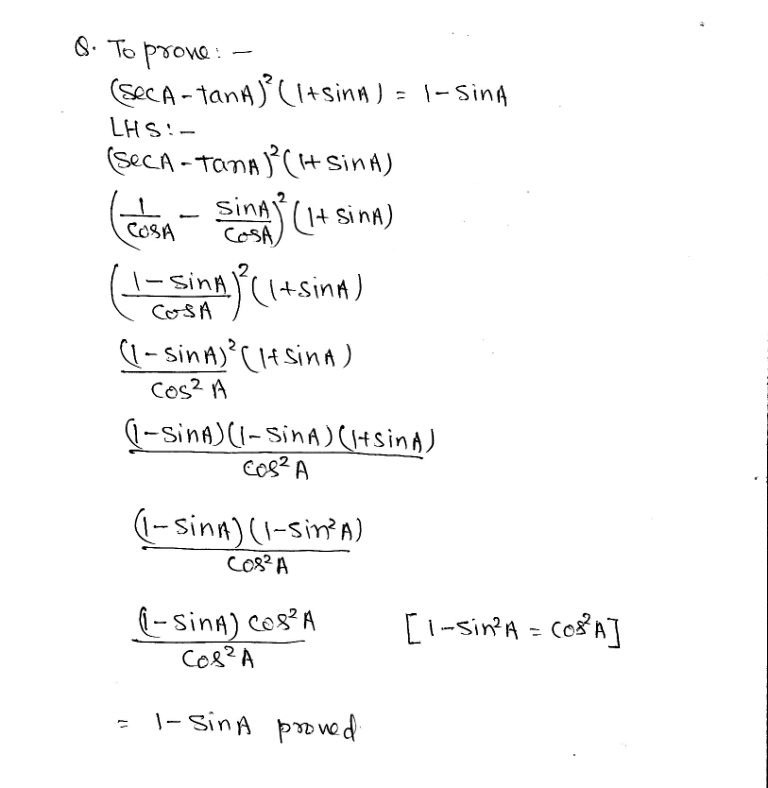 Q. To prove: –
(secA - tanA)² (1+sinA) = 1 - sinA
LHS: –
(secA - tanA)² (1+ sinA)
(1/cosA - sinA/cosA)² (1+ sinA)
((1 - sinA)/cosA)² (1+sinA)
(1 - sinA)² (1+sinA)
cos² A
(1-sinA)(1- sinA)(1+sinA)
cos² A
(1- sinA) (1-sin²A)
cos²A
(1- sinA) cos²A [1-sin²A = cos²A]
cos² A
= 1- sinA proved